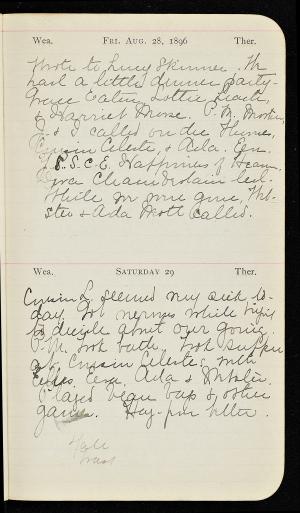 Wea. FRI. AUG. 28, 1896 Ther.
Wrote to Lucy Skinner. We
had a little dinner party -
Grace Eaton, Lottie Leach,
& Harriet Morse. P.M. Mother,
& I called on the Humes,
Cousin Celeste, & Ada. Eve.
Y.P.S.C.E. Happiness of Heaven.
Chamberlain led.
While we were gone, Web-
ster & Ada Mott called.
Wea. SATURDAY 29 Ther.
Cousin L. seemed very sick to-
day. We nervous while trying
to decide about our going.
P.M. took bath. Took supper
at Cousin Celeste's with
Eve. Ada & Webster.
Played bean bags & other
games. Hay-fever better.